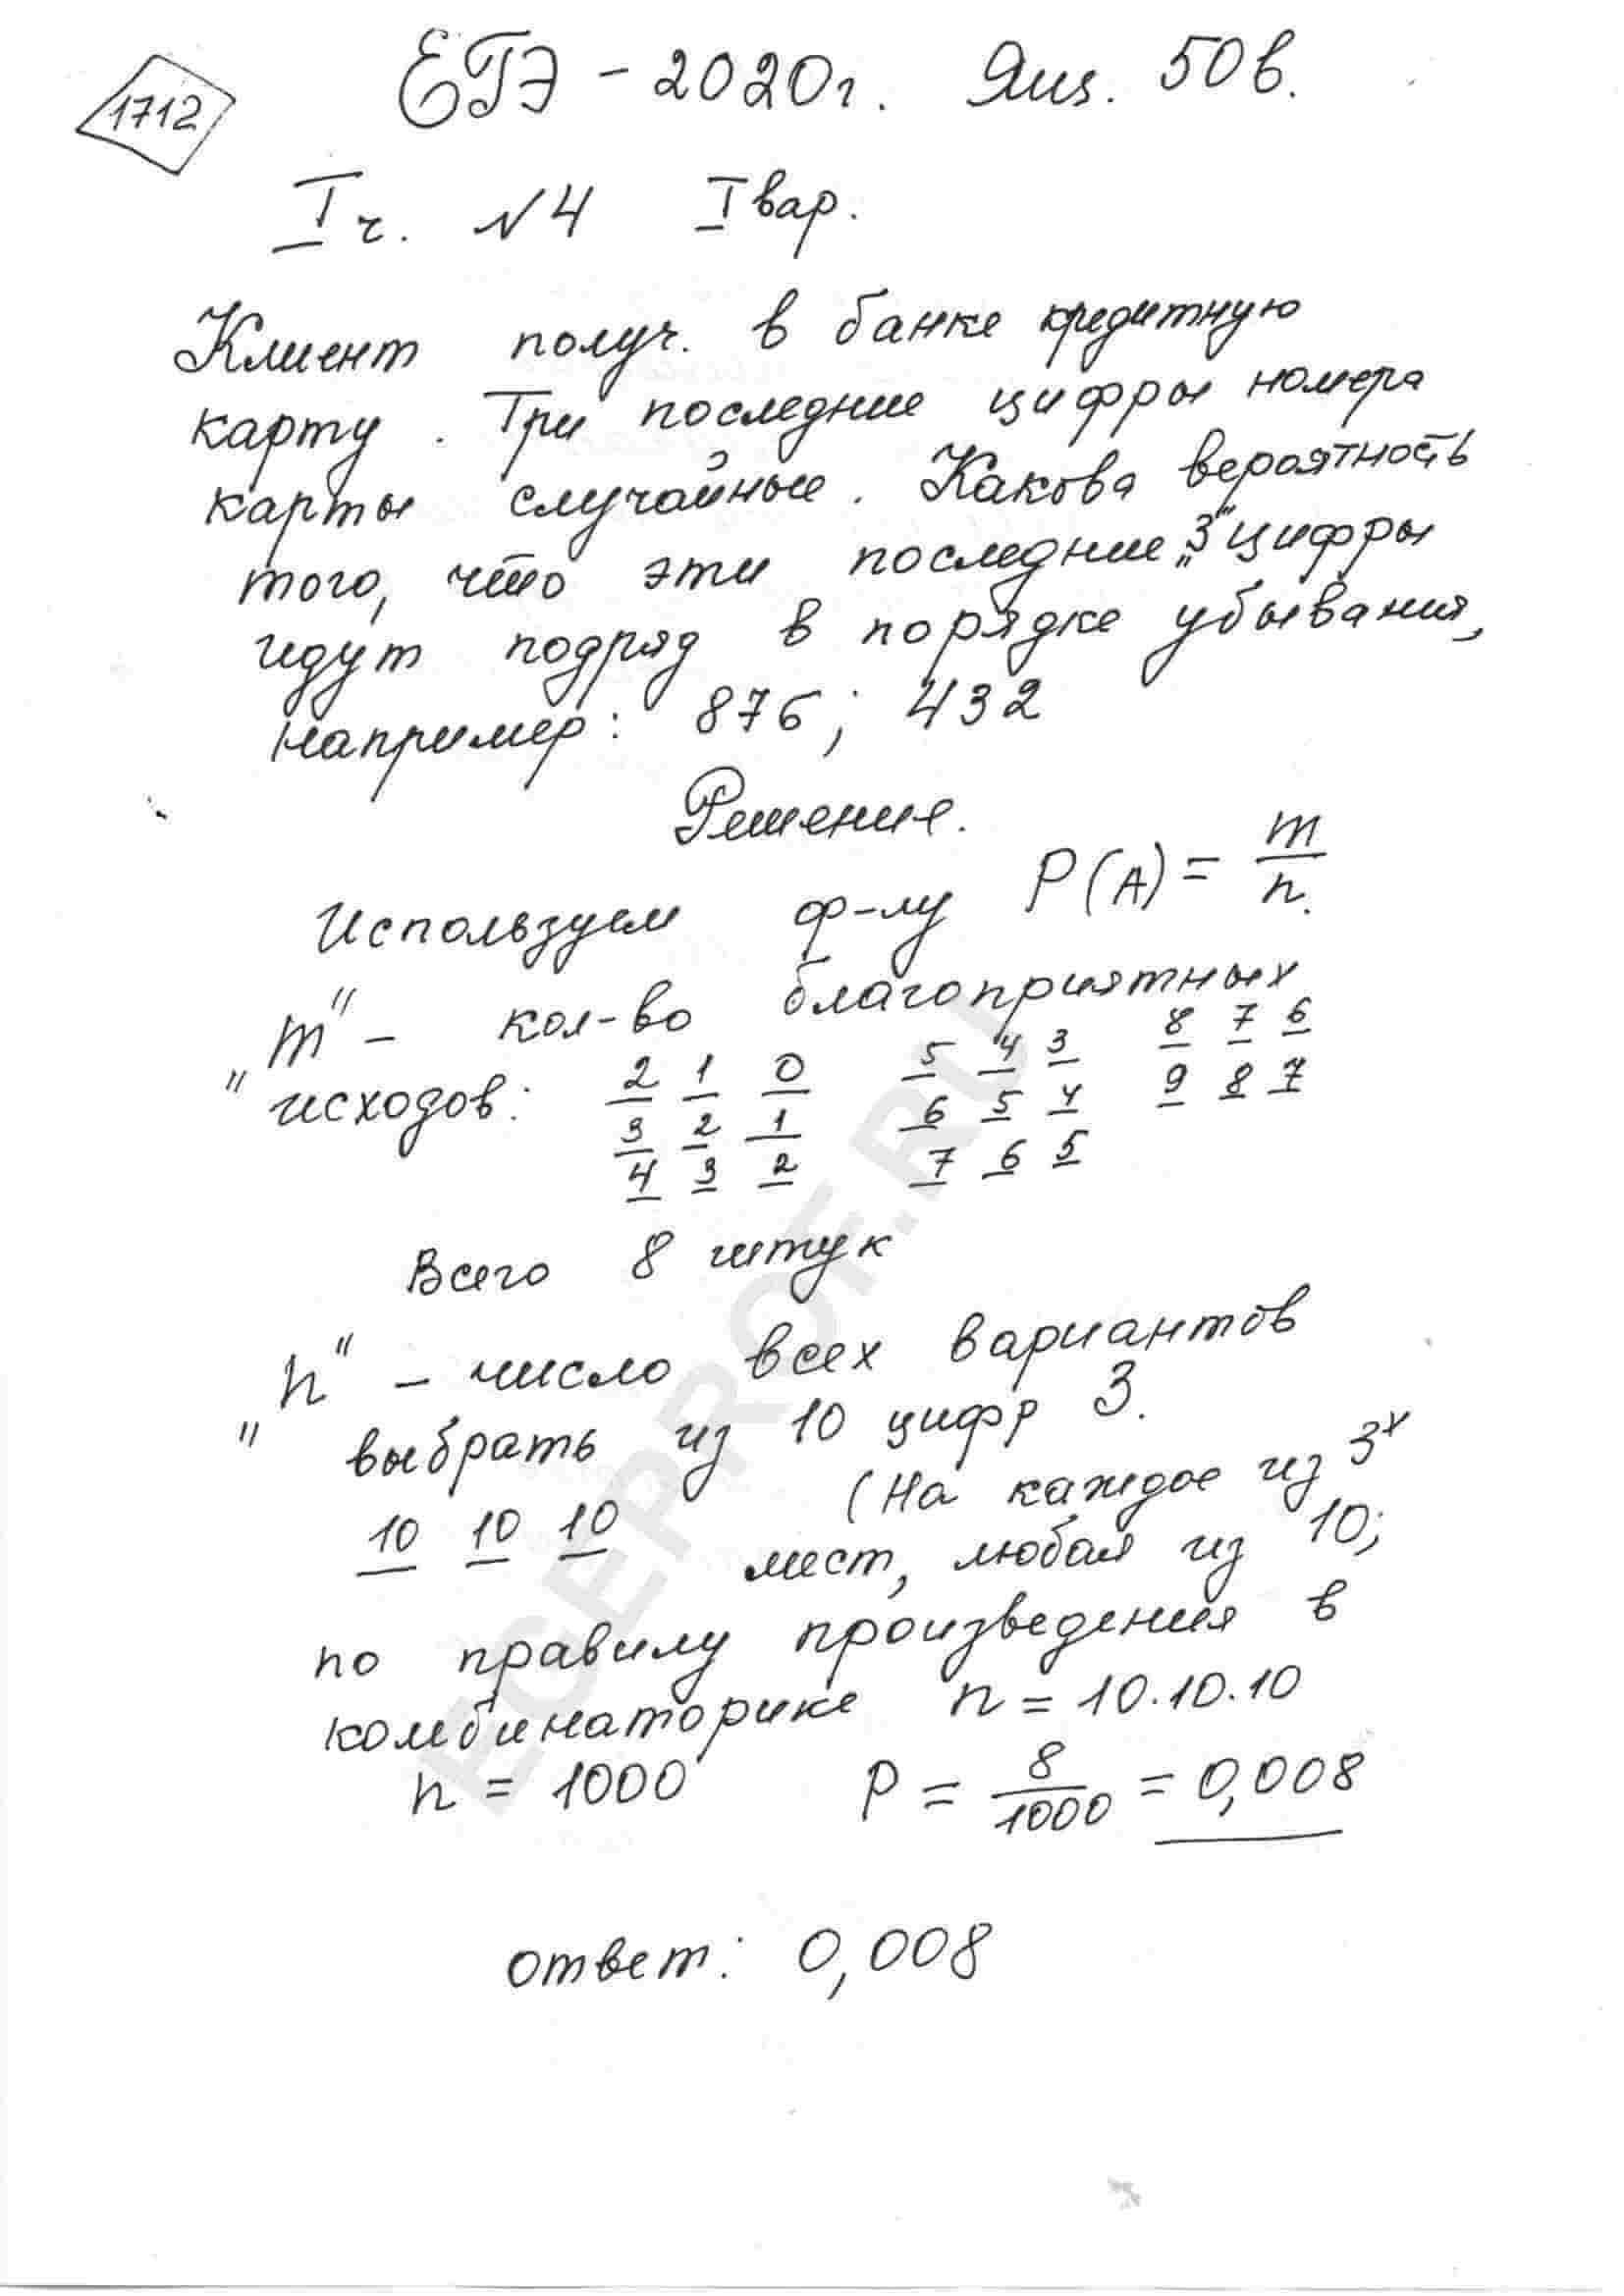 1712
ЕГЭ - 2020г. Ящ. 50в.
I ч. №4 I вар.
Клиент получ. в банке кредитную
карту. Три последние цифры номера
карты случайные. Какова вероятность
того, что эти последние „3“ цифры
идут подряд в порядке убывания,
например: 876; 432
Решение.
Используем ф-лу P(A) = m/n.
„m“ - кол-во благоприятных
исходов: 2 1 0 5 4 3 8 7 6
3 2 1 6 5 4 9 8 7
4 3 2 7 6 5
Всего 8 штук
„n“ - число всех вариантов
выбрать из 10 цифр 3.
10 10 10 (На каждое из 3х
мест, любая из 10;
по правилу произведения в
комбинаторике n = 10·10·10
n = 1000 P = 8/1000 = 0,008
ответ: 0,008
EGEPROF.RU